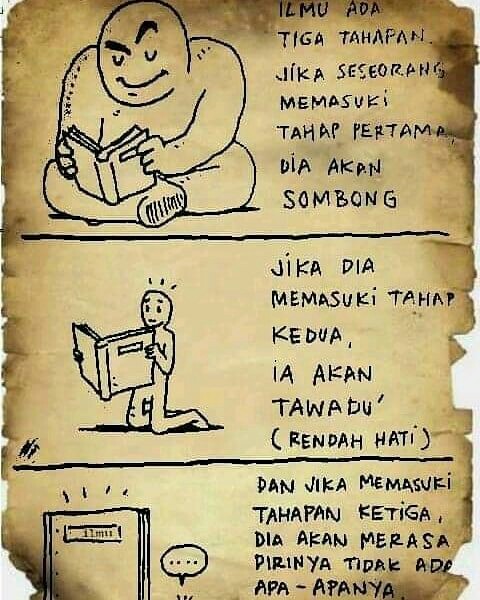 ILMU ADA
TIGA TAHAPAN.
JIKA SESEORANG
MEMASUKI
TAHAP PERTAMA,
DIA AKAN
SOMBONG
JIKA DIA
MEMASUKI TAHAP
KEDUA,
IA AKAN
TAWADU'
(RENDAH HATI)
DAN JIKA MEMASUKI
TAHAPAN KETIGA,
DIA AKAN MERASA
DIRINYA TIDAK ADA
APA-APANYA.
Ilmu
....